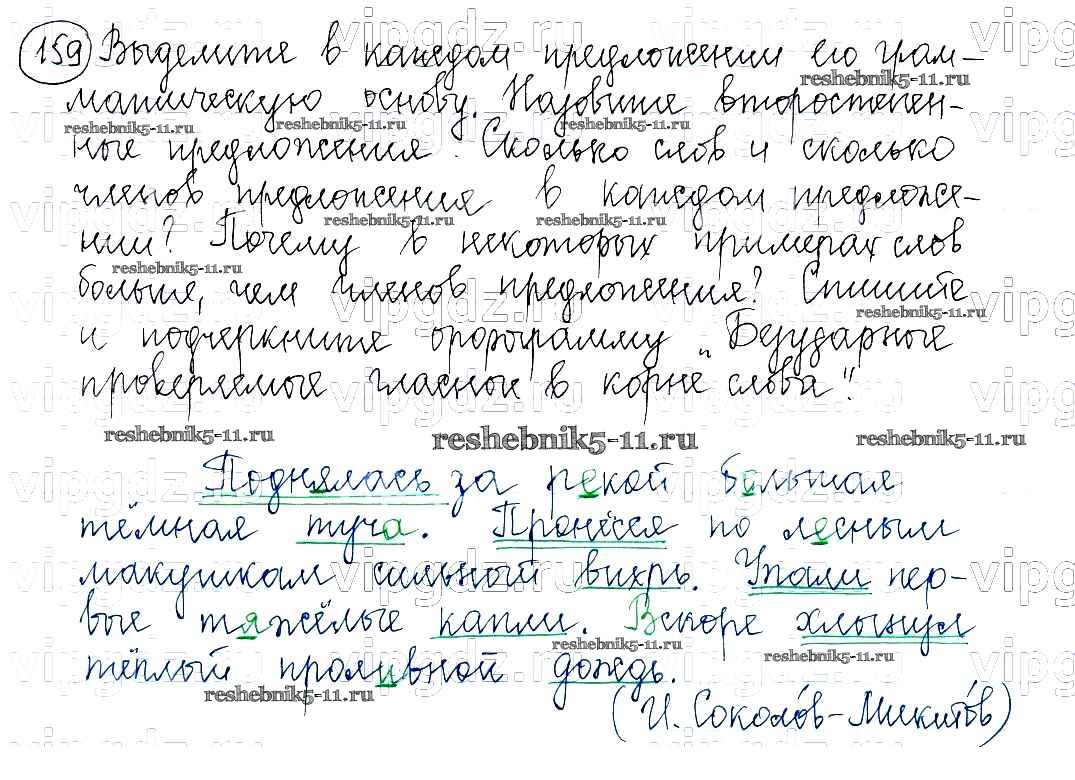 159 Выделите в каждом предложении его грам-
матическую основу. Назовите второстепен-
ные предложения. Сколько слов и сколько
членов предложения в каждом предложе-
нии? Почему в некоторых примерах слов
больше, чем членов предложения? Спишите
и подчеркните орфограмму „Безударные
проверяемые гласные в корне слова".
reshebnik5-11.ru reshebnik5-11.ru reshebnik5-11.ru
Поднялась за рекой большая
тёмная туча. Пронёсся по лесным
макушкам сильный вихрь. Упали пер-
вые тяжёлые капли. Вскоре хлынул
тёплый проливной дождь.
(И. Соколов-Микитов)